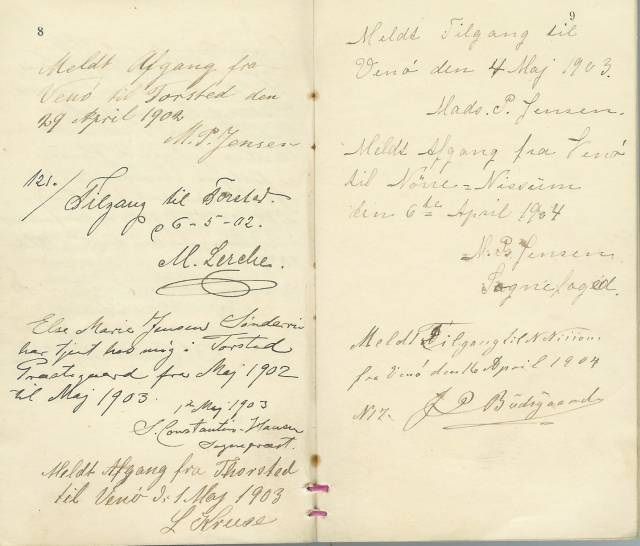 8
Meldt Afgang fra
Venö til Torsted den
29 April 1902
M. P. Jensen
121./ Tilgang til Torsted.
d 6-5-02.
M. Lerche.
Else Marie Jensen Sönderriis
har tjent hos mig i Torsted
Præstegaard fra Maj 1902
til Maj 1903.
1ste Maj 1903
S. Constantin-Hansen
Sognepræst.
Meldt Afgang fra Thorsted
til Venö d. 1 Maj 1903
L Kruse
9
Meldt Tilgang til
Venö den 4 Maj 1903.
Mads. P. Jensen.
Meldt Afgang fra Venö
til Nörre=Nissum
den 6te April 1904
M. P. Jensen
Sognefoged.
Meldt Tilgang til N. Nissum
fra Venö den 16 April 1904
N17. J P Bü​dsgaard